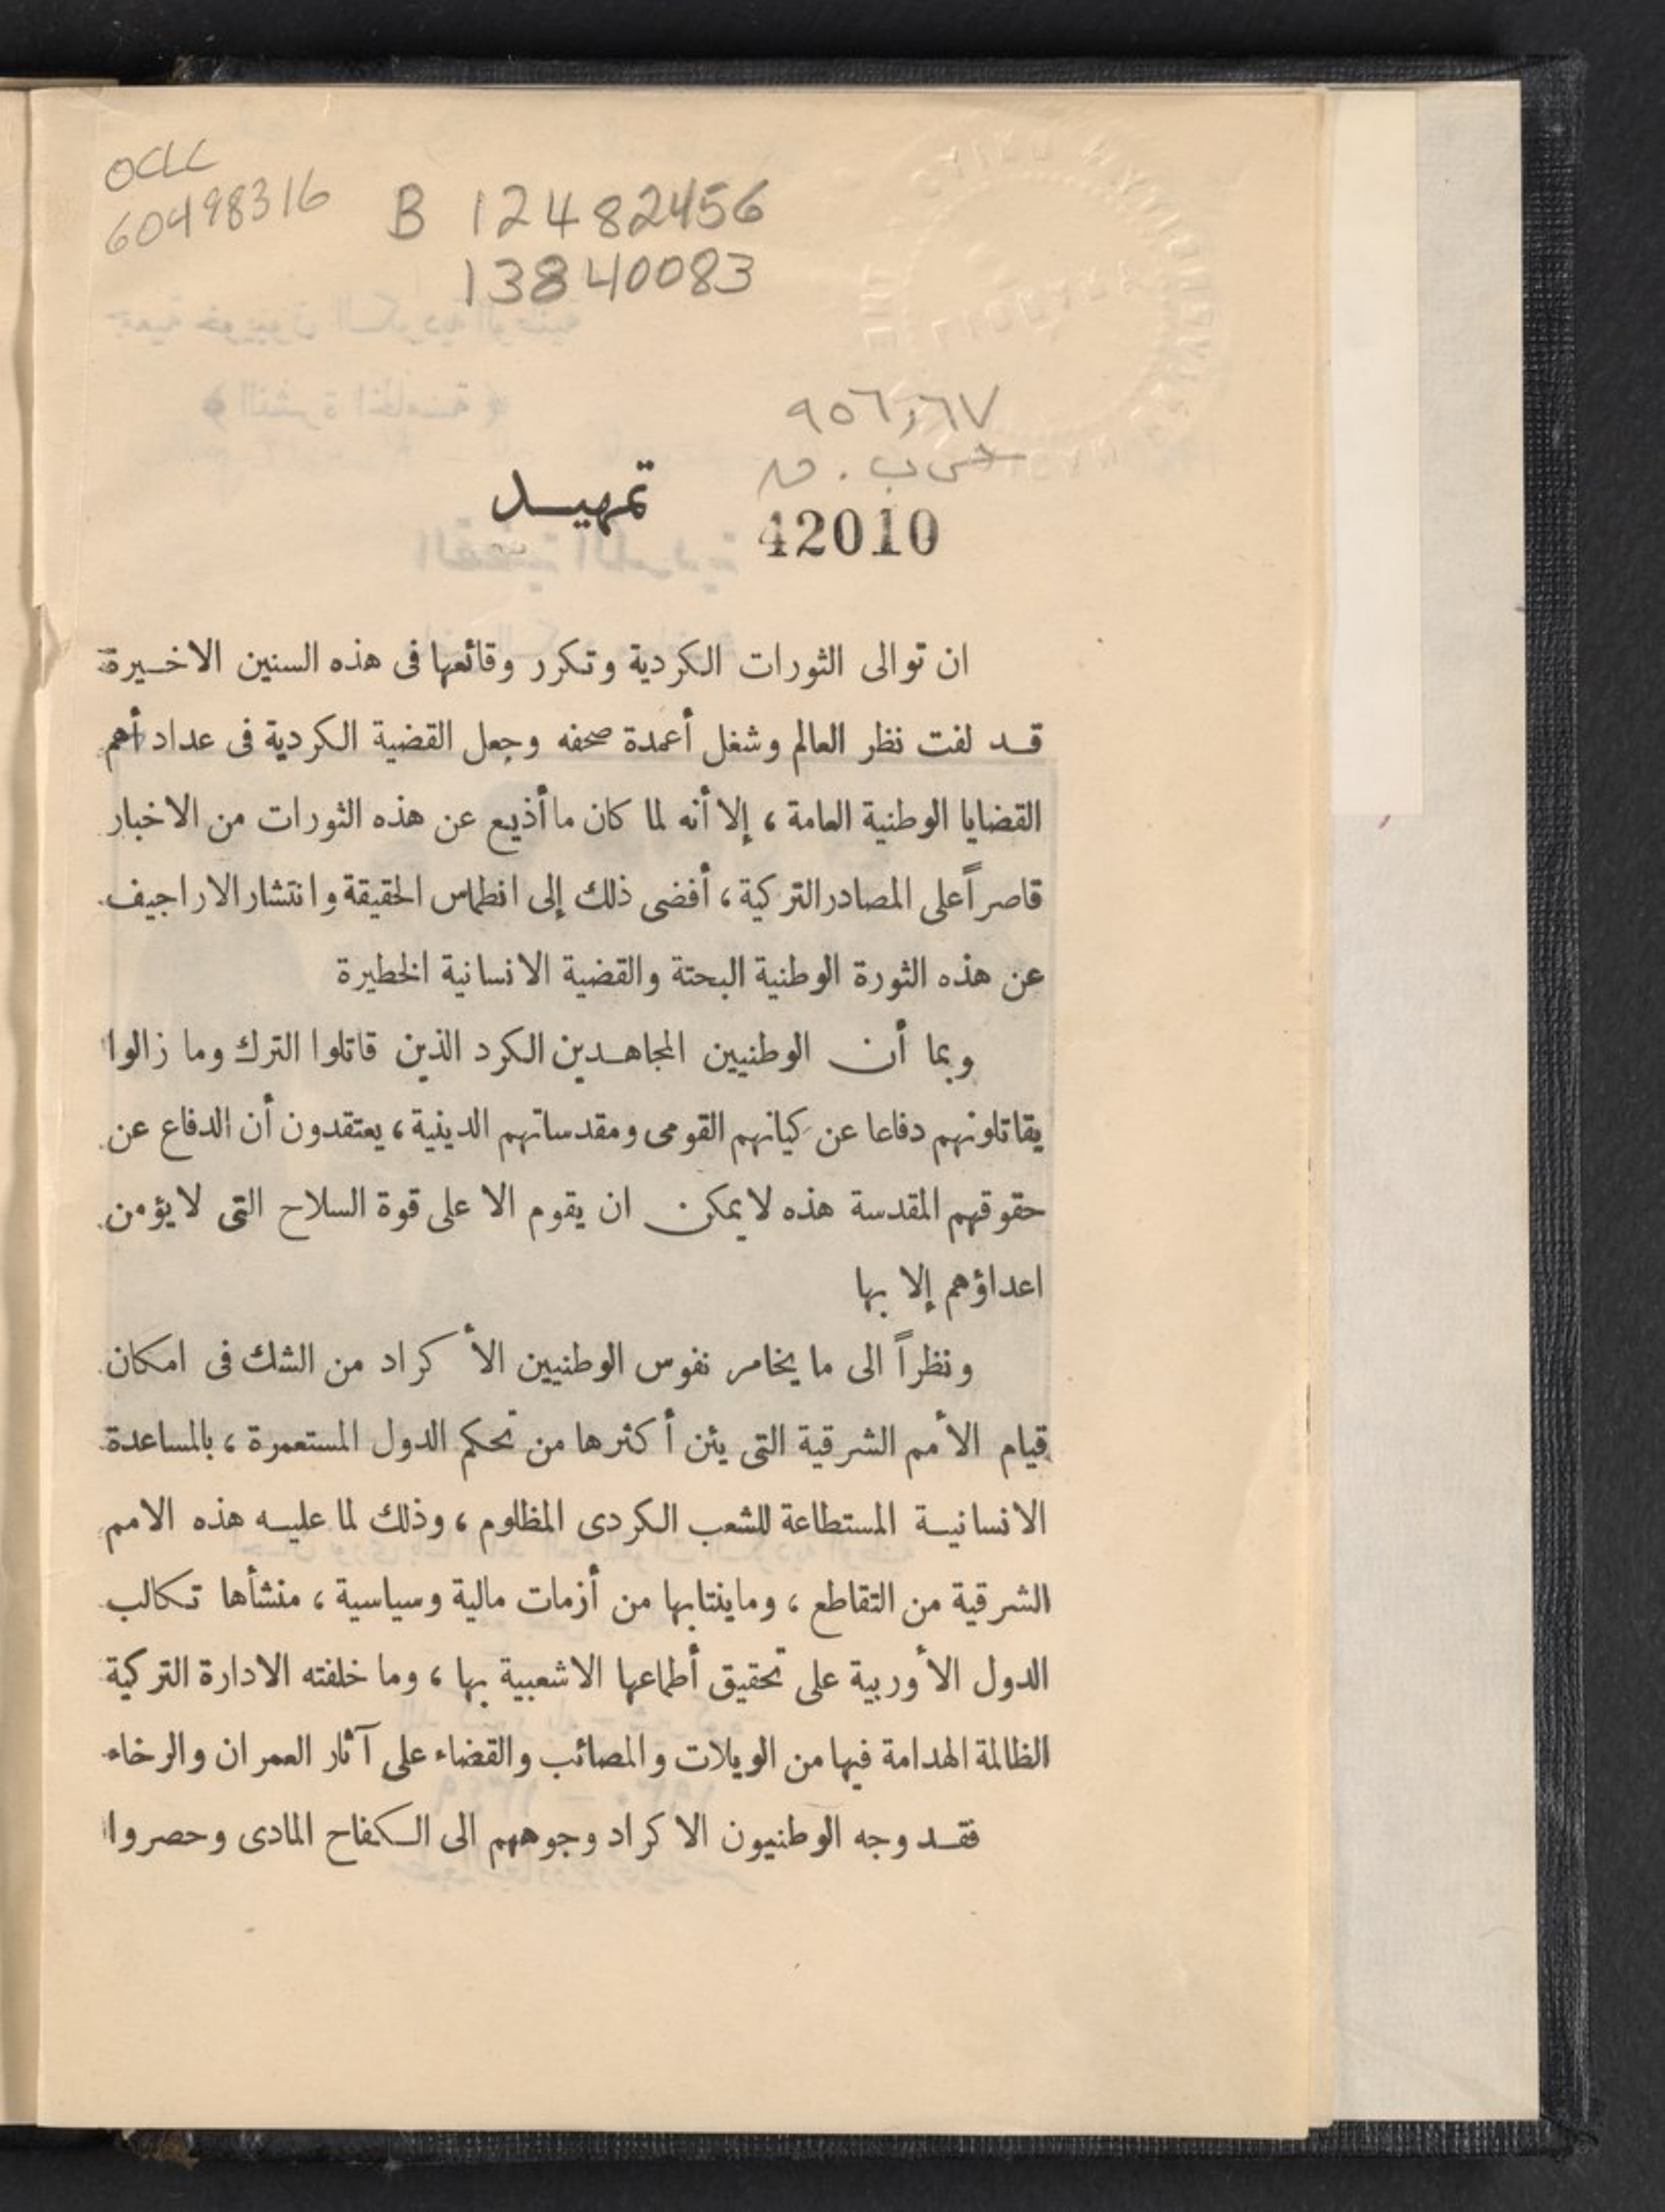 OCLC
60498316
B 12482456
13840083
٩٥٦,٦٧
تمهيد
42010
ان توالى الثورات الكردية وتكرر وقائعها فى هذه السنين الاخيرة
قد لفت نظر العالم وشغل أعمدة صحفه وجعل القضية الكردية فى عداد أهم
القضايا الوطنية العامة ، إلا أنه لما كان ما أذيع عن هذه الثورات من الاخبار
قاصراً على المصادر التركية ، أفضى ذلك إلى انطماس الحقيقة وانتشار الاراجيف
عن هذه الثورة الوطنية البحتة والقضية الانسانية الخطيرة
وبما أن الوطنيين المجاهدين الكرد الذين قاتلوا الترك وما زالوا
يقاتلونهم دفاعا عن كيانهم القومى ومقدساتهم الدينية ، يعتقدون أن الدفاع عن
حقوقهم المقدسة هذه لا يمكن ان يقوم الا على قوة السلاح التى لا يؤمن
اعداؤهم إلا بها
ونظراً الى ما يخامر نفوس الوطنيين الأكراد من الشك فى امكان
قيام الأمم الشرقية التى يئن أكثرها من تحكم الدول المستعمرة ، بالمساعدة
الانسانية المستطاعة للشعب الكردى المظلوم ، وذلك لما عليه هذه الامم
الشرقية من التقاطع ، وما ينتابها من أزمات مالية وسياسية ، منشأها تكالب
الدول الأوربية على تحقيق أطماعها الاشعبية بها ، وما خلفته الادارة التركية
الظالمة الهدامة فيها من الويلات والمصائب والقضاء على آثار العمران والرخاء
فقد وجه الوطنيون الاكراد وجوههم الى الكفاح المادى وحصروا